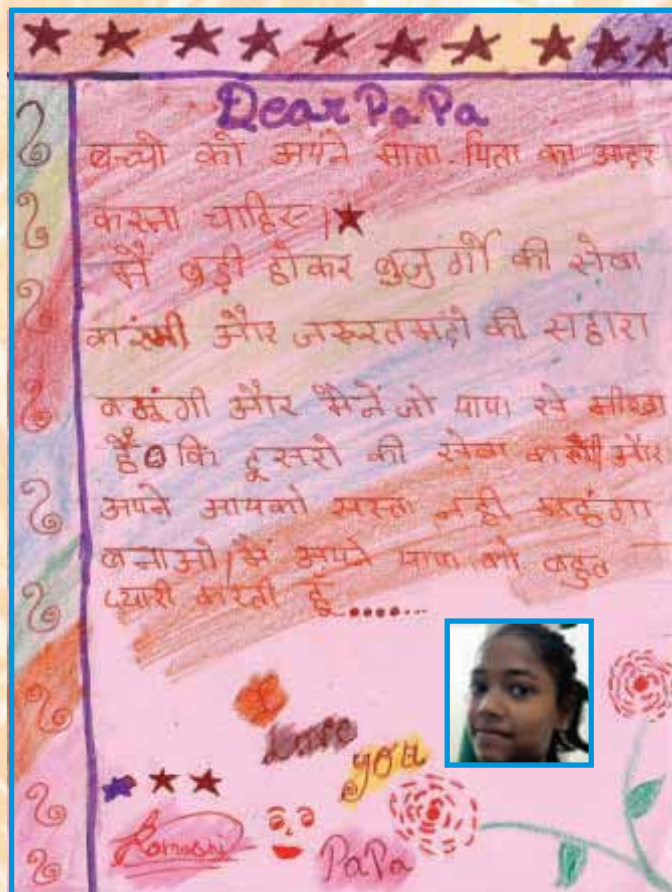 Dear PaPa
बच्चो को अपने माता-पिता का आदर
करना चाहिए।
मैं बड़ी होकर बुजुर्गो की सेवा
करुंगी और जरूरतमंदो की सहारा
बनूंगी और मैनें जो पापा से सीखा
हैं कि दूसरो की सेवा और
अपने आपको सस्ता नही महंगा
बनाओ। मैं अपने पापा को बहुत
प्यारी करती हूँ.......
Love
you
PaPa